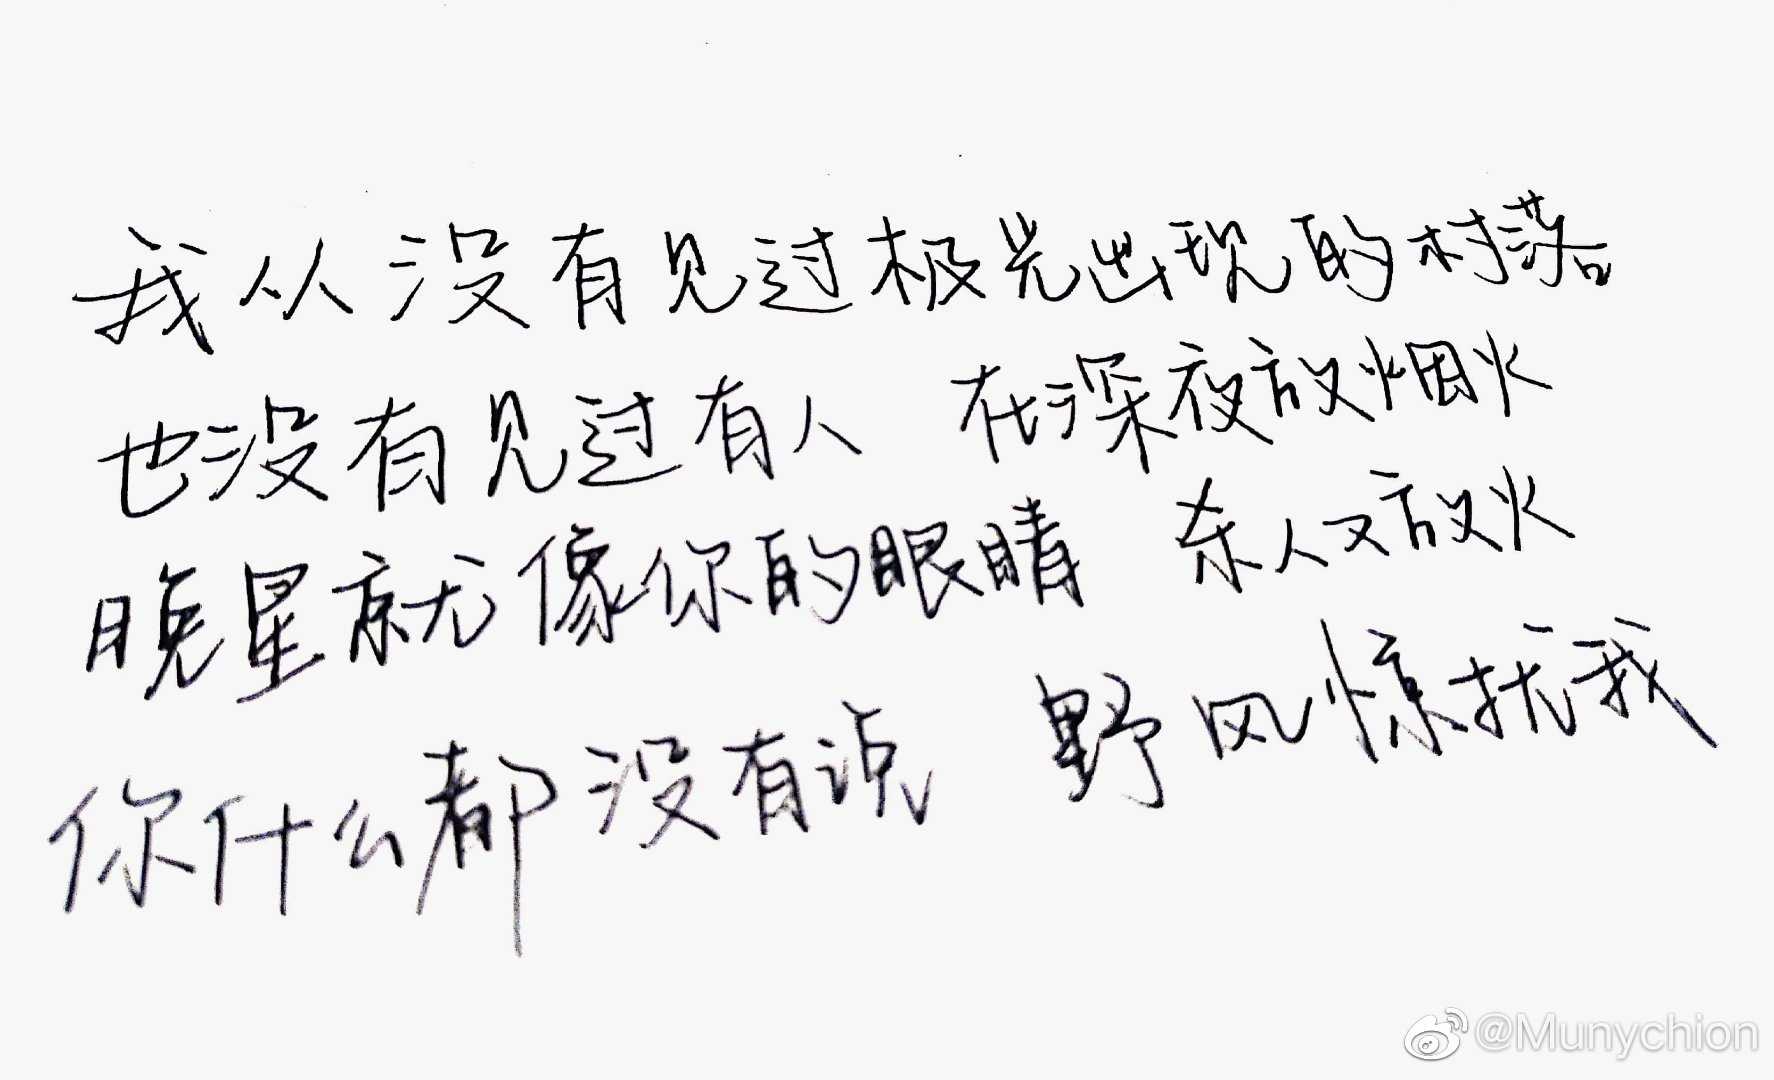 我从没有见过极光出现的村落
也没有见过有人 在深夜放烟火
晚星就像你的眼睛 杀人又放火
你什么都没有说 野风惊扰我
@Munychion